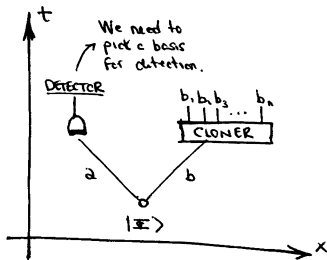 t
We need to
pick a basis
for detection.
DETECTOR
b₁ b₂ b₃ ... bₙ
CLONER
a b
|Φ⟩
x